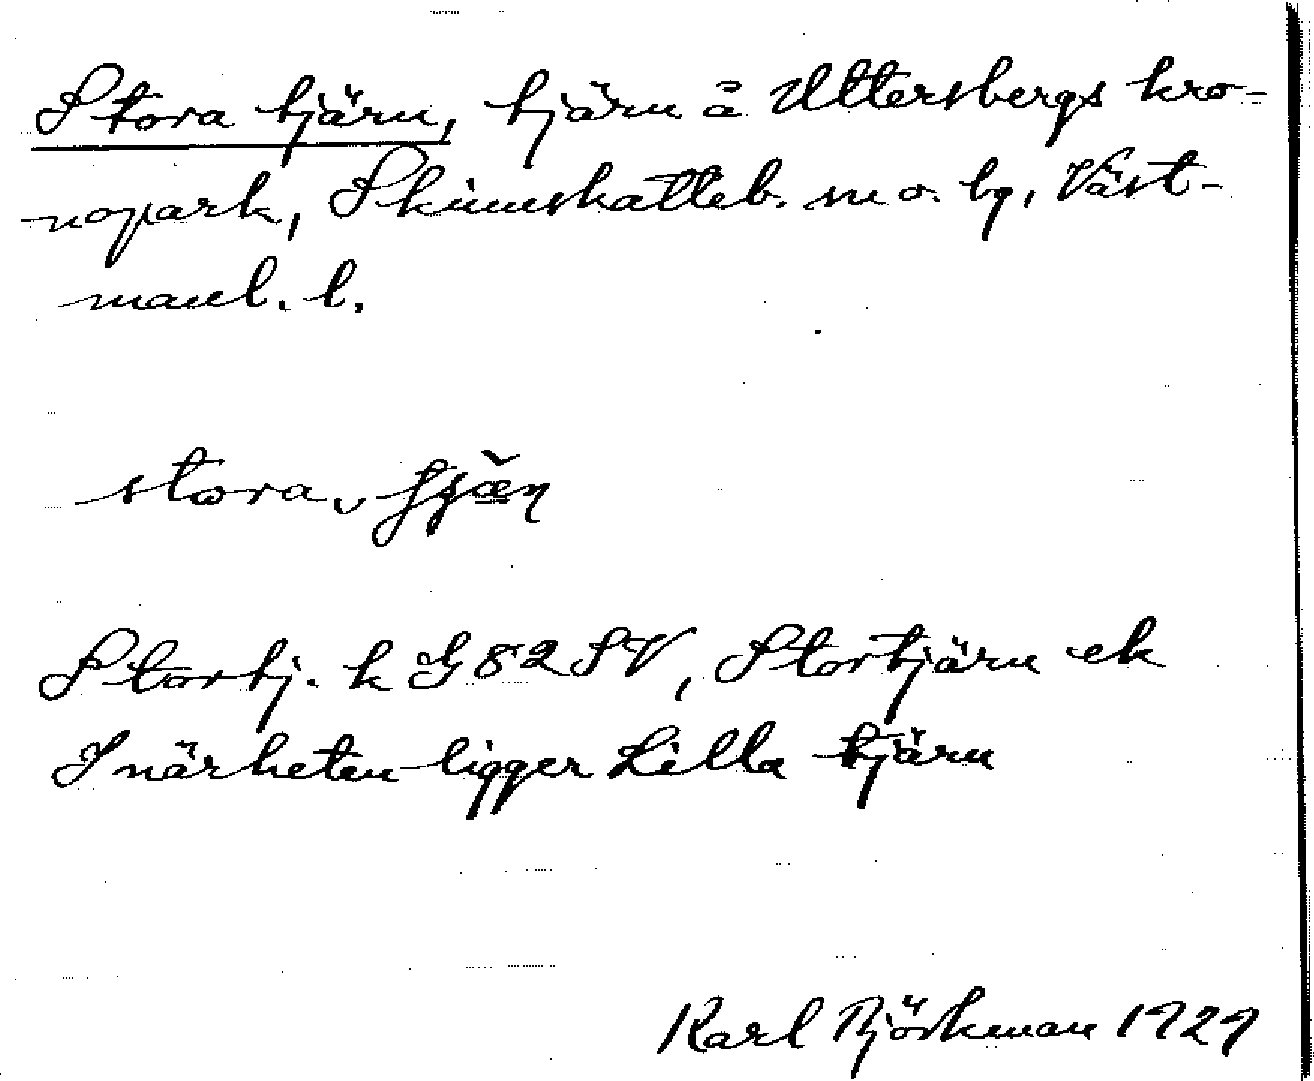 Stora tjärn, tjärn å Uttersbergs kro-
nopark, Skinnskatteb. sn o. bg, Väst-
manl. l.
stora
Stortj. k G82SV, Stortjärn ek
I närheten ligger Lilla tjärn
Karl Björkman 1929